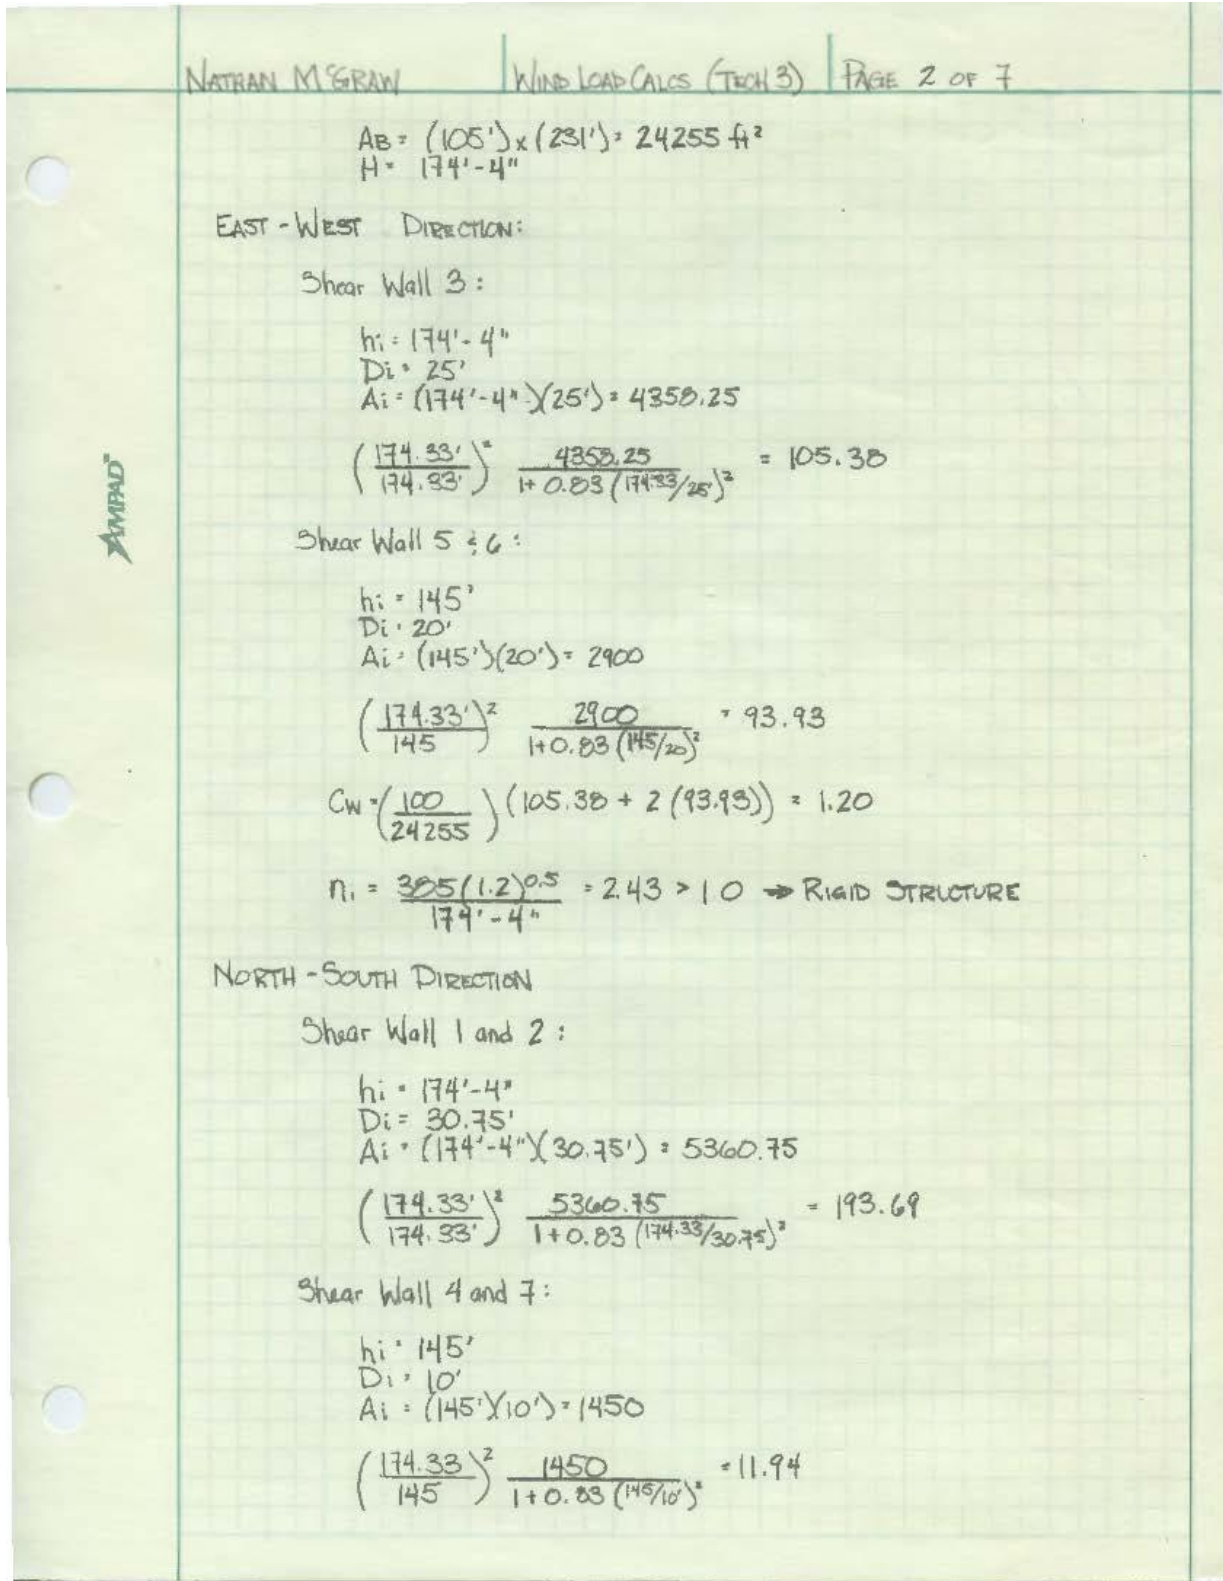 NATHAN McGRAW WIND LOAD CALCS (TECH 3) PAGE 2 OF 7
AB = (105') x (231') = 24255 ft²
H = 174'-4"
EAST - WEST DIRECTION:
Shear Wall 3:
hi = 174'-4"
Di = 25'
Ai = (174'-4")(25') = 4358.25
(174.33'/174.33')² 4358.25/(1+0.83(174.33/25')²) = 105.38
AMPAD®
Shear Wall 5 & 6:
hi = 145'
Di = 20'
Ai = (145')(20') = 2900
(174.33'/145)² 2900/(1+0.83(145/20)²) = 93.93
Cw = (100/24255)(105.38 + 2(93.93)) = 1.20
n₁ = 385(1.2)^0.5/174'-4" = 2.43 > 1.0 → RIGID STRUCTURE
NORTH - SOUTH DIRECTION
Shear Wall 1 and 2:
hi = 174'-4"
Di = 30.75'
Ai = (174'-4")(30.75') = 5360.75
(174.33'/174.33')² 5360.75/(1+0.83(174.33/30.75)²) = 193.69
Shear Wall 4 and 7:
hi = 145'
Di = 10'
Ai = (145')(10') = 1450
(174.33/145)² 1450/(1+0.83(145/10')²) = 11.94